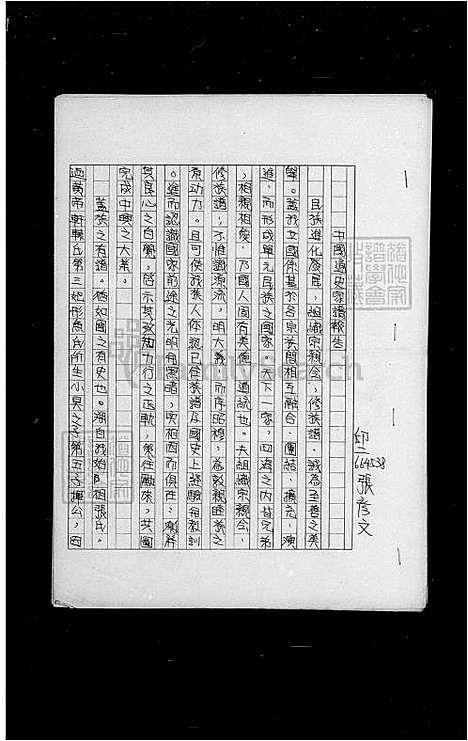 中國通史家譜報告
印二
664538
張彥文
民族進化發展，組織宗親会，修族譜，誠為至善之美
舉。蓋我立國係基於各宗族間相互融合、團結、擴充，演
進，而形成單元民族之國家。天下一家，四海之內皆兄弟
，相親相愛，乃國人固有美德，道統也。夫組織宗親会、
修族譜；不惟識源流，明大義，而序昭穆，為敦親睦族之
原動力。且可使我族人你認已往族譜及國史上經驗與教訓
。進而認識國家前途之光明與黑暗，
其良心之自覺，啓示其致知力行之正軌，策往勵來，共圖
完成中興之大業。
蓋族之有譜，猶如國之有史也。溯自我始祖張氏。
迺黃帝軒轅氏第三妃彤魚氏所生小昊之子第五子揮公，因
FamilySearch